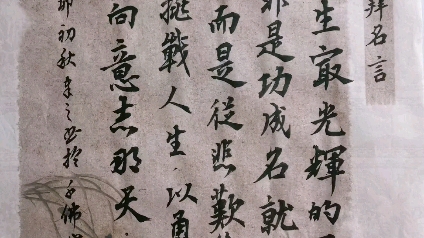 拜名言
生㝡光輝的
非是功成名就
而是從悲歎
挑戰人生以勇
向意志那天
初秋於千佛